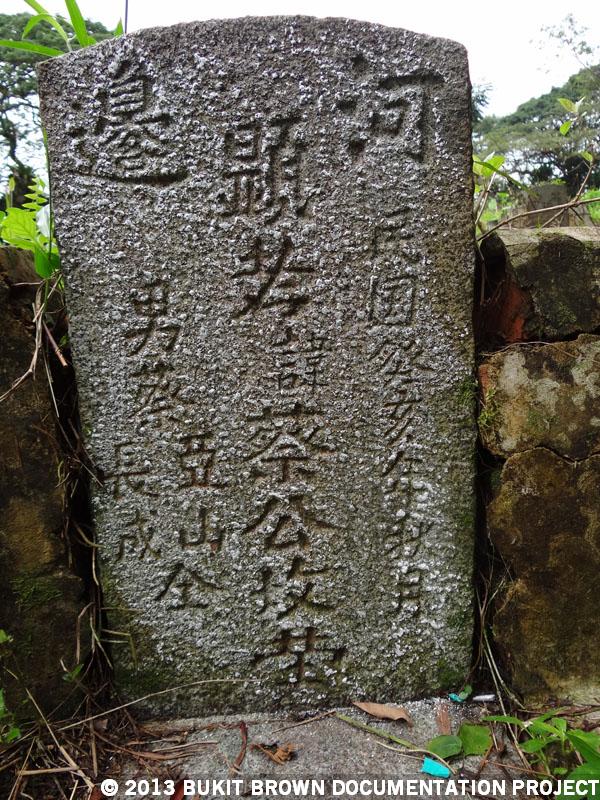 河邊
民国癸亥年秋月
顕考諱蔡公坟茔
男蔡
亞山
長成
仝
© 2013 BUKIT BROWN DOCUMENTATION PROJECT